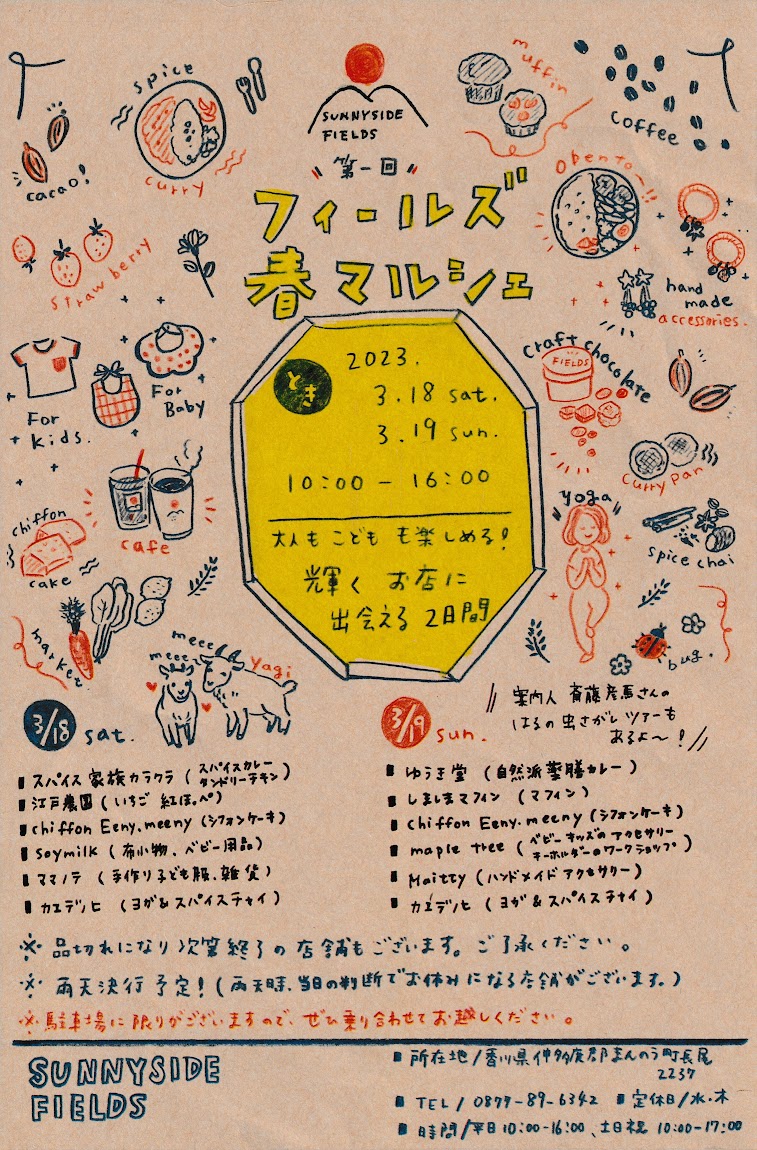 spice
curry
cacao!
SUNNYSIDE
FIELDS
muffin
coffee
第一回
フィールズ
春マルシェ
Obentoー!!
strawberry
hand
made
accessories.
For
Kids.
For
Baby
craft chocolate
FIELDS
とき
2023.
3.18 sat.
3.19 sun.
10:00 - 16:00
大人もこどもも楽しめる!
輝くお店に
出会える2日間
curry pan
chiffon
cake
cafe
yoga
spice chai
market
meee
meee
yagi
bug.
案内人 斉藤彦馬さんの
はるの虫さがしツアーも
あるよ〜!
3/18 sat.
スパイス家族カラクラ(スパイスカレー
タンドリーチキン)
江戸農園(いちご 紅ほっぺ)
chiffon Eeny.meeny(シフォンケーキ)
soymilk(布小物、ベビー用品)
ママノテ(手作り子ども服、雑貨)
カエデノヒ(ヨガ&スパイスチャイ)
3/19 sun.
ゆうき堂(自然派薬膳カレー)
しましまマフィン(マフィン)
chiffon Eeny.meeny(シフォンケーキ)
maple tree(ベビーキッズのアクセサリー
キーホルダーのワークショップ)
Maitty(ハンドメイドアクセサリー)
カエデノヒ(ヨガ&スパイスチャイ)
※品切れになり次第終了の店舗もございます。ご了承ください。
※雨天決行予定!(雨天時、当日の判断でお休みになる店舗がございます。)
※駐車場に限りがございますので、ぜひ乗り合わせてお越しください。
SUNNYSIDE
FIELDS
所在地/香川県仲多度郡まんのう町長尾
2237
TEL/0877-89-6342 定休日/水・木
時間/平日10:00-16:00、土日祝 10:00-17:00